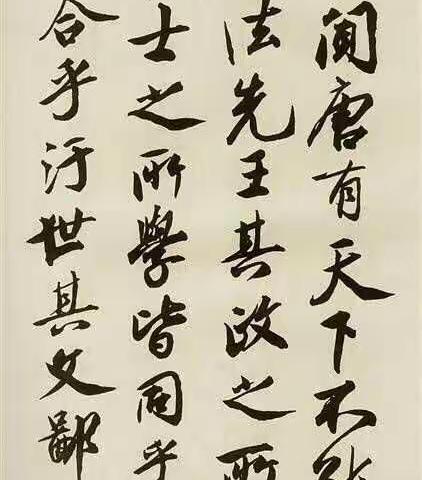 唐有天下不能
法先王其政之所
士之所學皆同乎
合乎汙世其文鄙